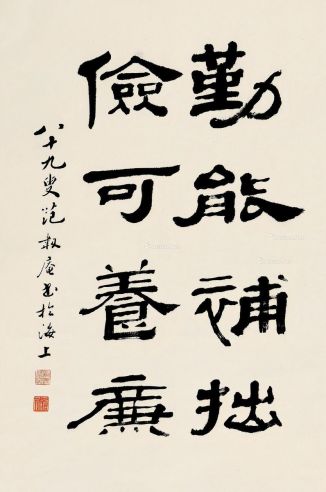 勤能補拙
儉可養廉
八十九叟范叔庵書於海上